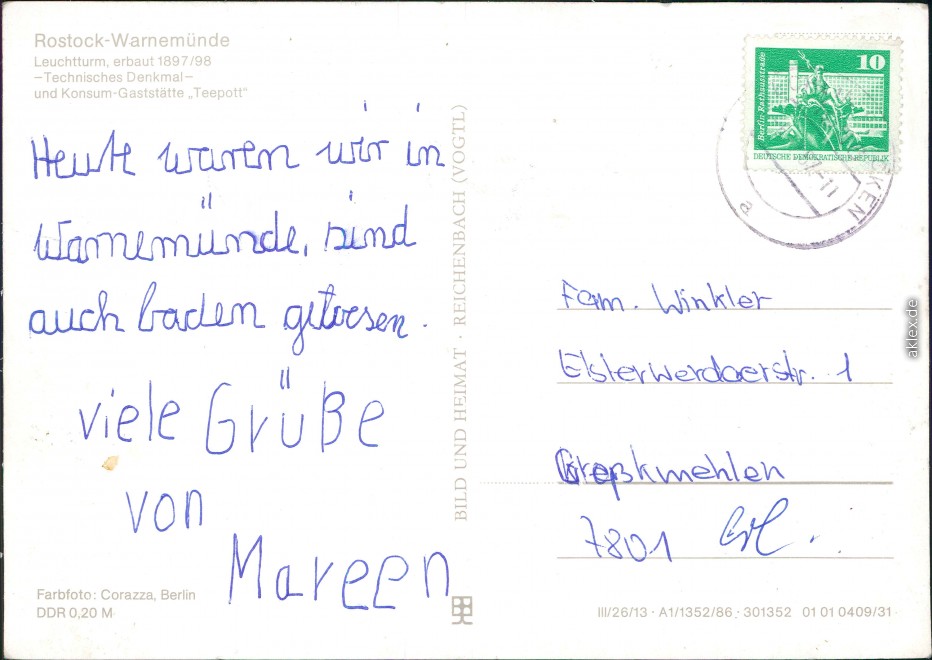 Rostock-Warnemünde
Leuchtturm, erbaut 1897/98
–Technisches Denkmal–
und Konsum-Gaststätte „Teepott“
Heute waren wir in
Warnemünde, sind
auch baden gewesen.
viele Grüße
von
Mareen
Farbfoto: Corazza, Berlin
DDR 0,20 M
BILD UND HEIMAT · REICHENBACH (VOGTL)
10
Berlin-Rathausstraße
DEUTSCHE DEMOKRATISCHE REPUBLIK
a
Fam. Winkler
Elsterwerdaerstr. 1
kmehlen
7801
III/26/13 · A1/1352/86 · 301352 01 01 0409/31
aklex.de